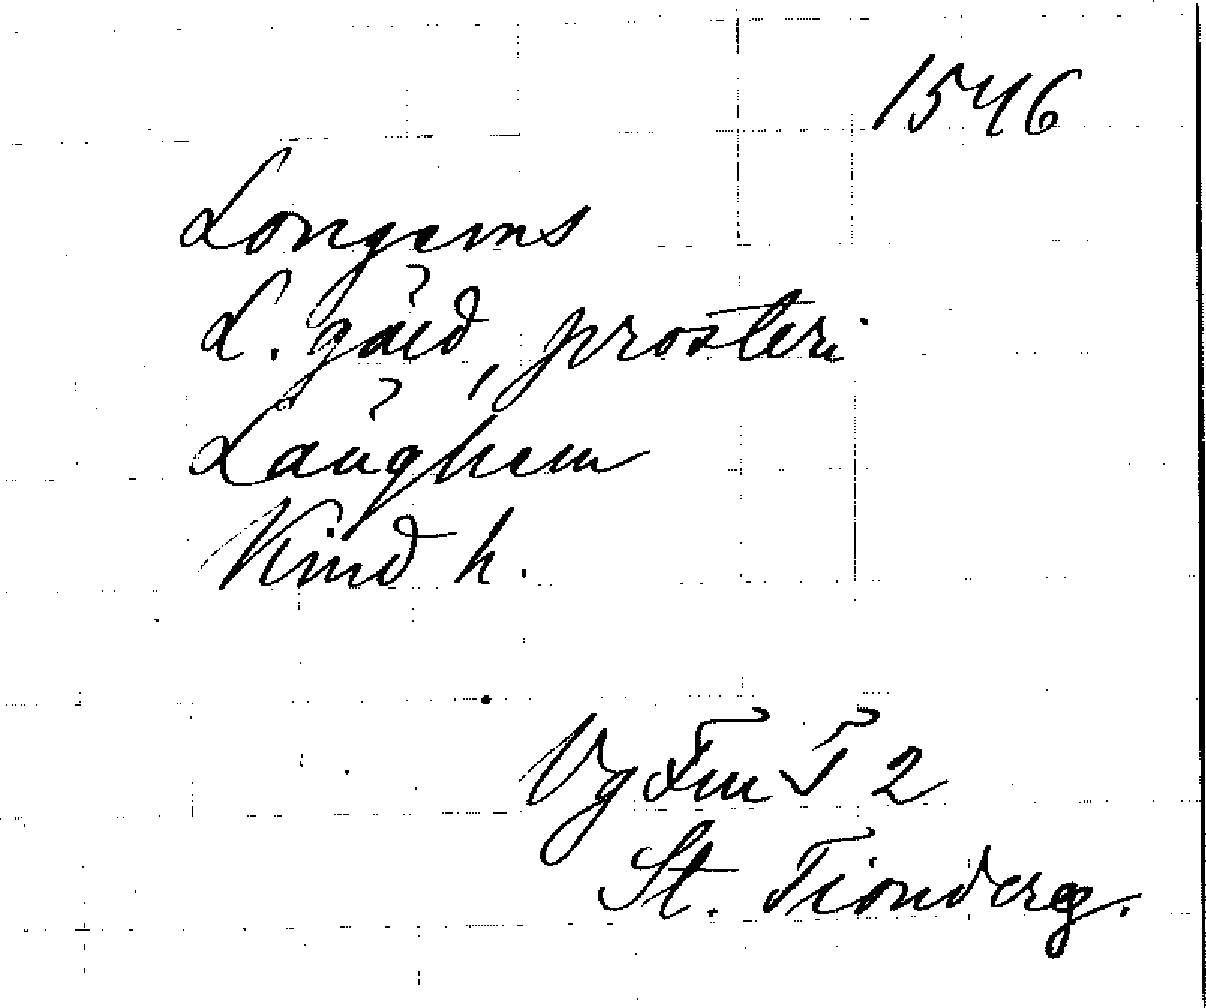 1546
Longems
L. gäld, prosteri
Länghem
Kind h.
Vg Fm T 2
St. Tionderg.